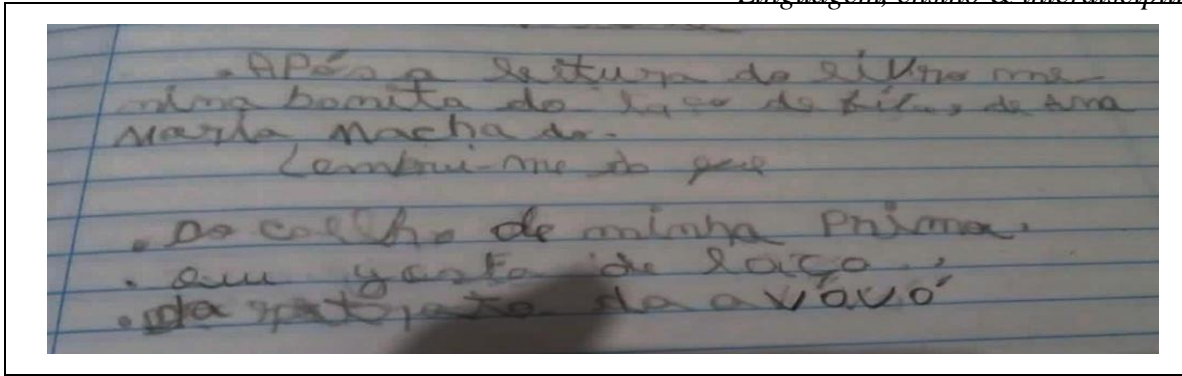 Linguagem, ensino &
. APós a leitura do livro me-
nina bonita do laço de fita, de Ana
Maria Machado.
Lembrei-me do que
. Do coelho de minha Prima.
. gosto de laço.
. da da avóvó